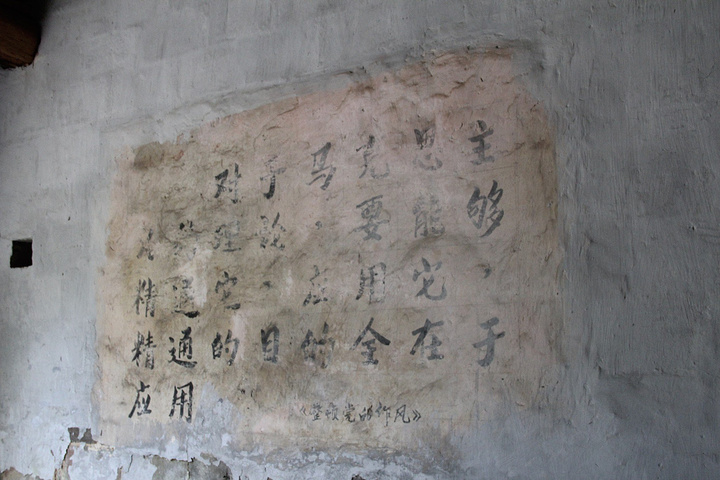 对于马克思主
义的理论，要能够
精通它、应用它、
精通的目的全在于
应用
《整顿党的作风》